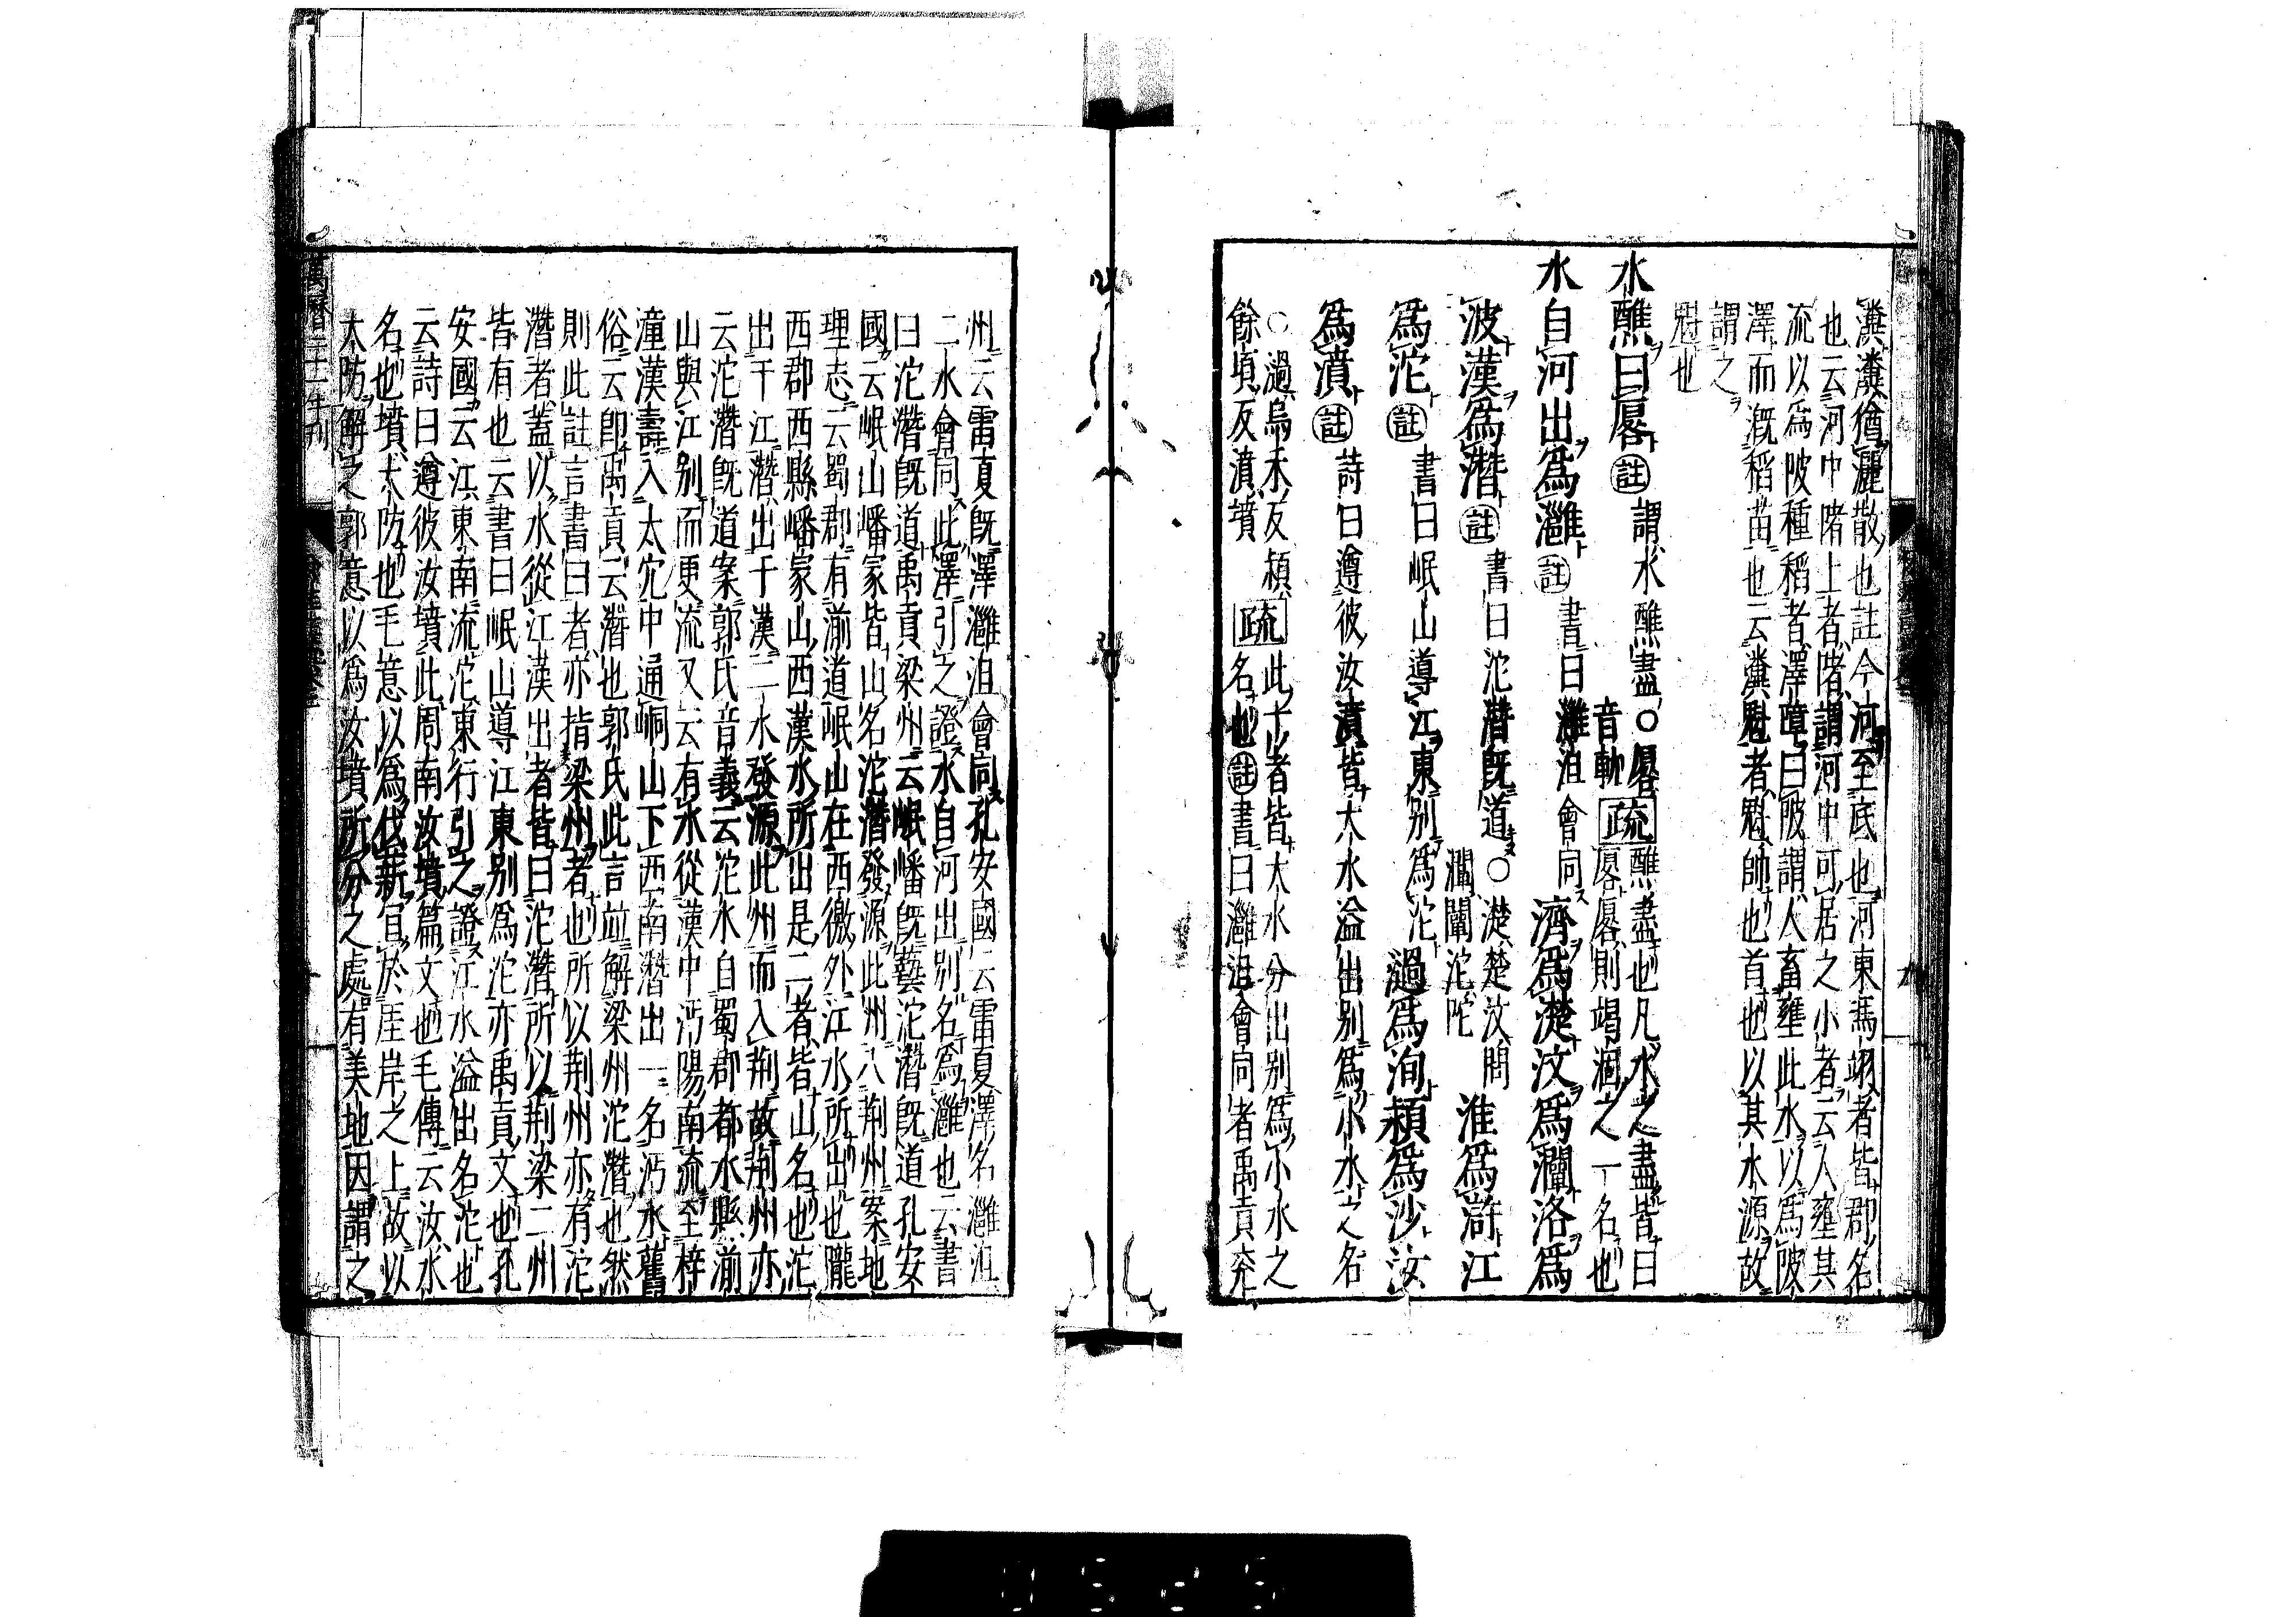 瀵瀵猶灑散也註今河至底也河東馮翊者皆郡名
也云河中陼上者陼謂河中可居之小者云人壅其
流以爲陂種稻者澤障曰陂謂人畜壅此水以爲陂
澤而漑稻苗也云瀵魁者魁帥也首也以其水源故
謂之
魁也
水醮曰厬註謂水醮盡○厬
音軌疏醮盡也凡水之盡皆曰
厬厬則竭涸之一名也
水自河出爲灉註書曰灉沮會同濟爲濋汶爲灛洛爲
波漢爲潛註書曰沱潛旣道○濋楚汶問
灛闡沱陀淮爲滸江
爲沱註書曰岷山導江東別爲沱過爲洵潁爲沙汝
爲濆註詩曰遵彼汝濆皆大水溢出別爲小水之名
○過烏禾反潁
餘頃反濆墳疏此十者皆大水分出別爲小水之
名也註書曰灉沮會同者禹貢兗
州云雷夏旣澤灉沮會同孔安國云雷夏澤名灉沮
二水會同此澤引之證水自河出別名爲灉也云書
曰沱潛旣道禹貢梁州云岷嶓旣藝沱潛旣道孔安
國云岷山嶓冢皆山名沱潛發源此州入荆州案地
理志云蜀郡有湔道岷山在西徼外江水所出也隴
西郡西縣嶓冢山西漢水所出是二者皆山名也沱
出于江潛出于漢二水發源此州而入荆故荆州亦
云沱潛旣道案郭氏音義云沱水自蜀郡都水縣湔
山與江別而更流又云有水從漢中沔陽南流至梓
潼漢壽入大穴中通峒山下西南潛出一名沔水舊
俗云卽禹貢云潛也郭氏此言竝解梁州沱潛也然
則此註言書曰者亦指梁州者也所以荆州亦有沱
潛者蓋以水從江漢出者皆曰沱潛所以荆梁二州
皆有也云書曰岷山導江東別爲沱亦禹貢文也孔
安國云江東南流沱東行引之證江水溢出名沱也
云詩曰遵彼汝墳此周南汝墳篇文也毛傳云汝水
名也墳大防也毛意以爲伐薪宜於厓岸之上故以
大防解之郭意以爲汝墳所分之處有美地因謂之
萬曆二十一年刊